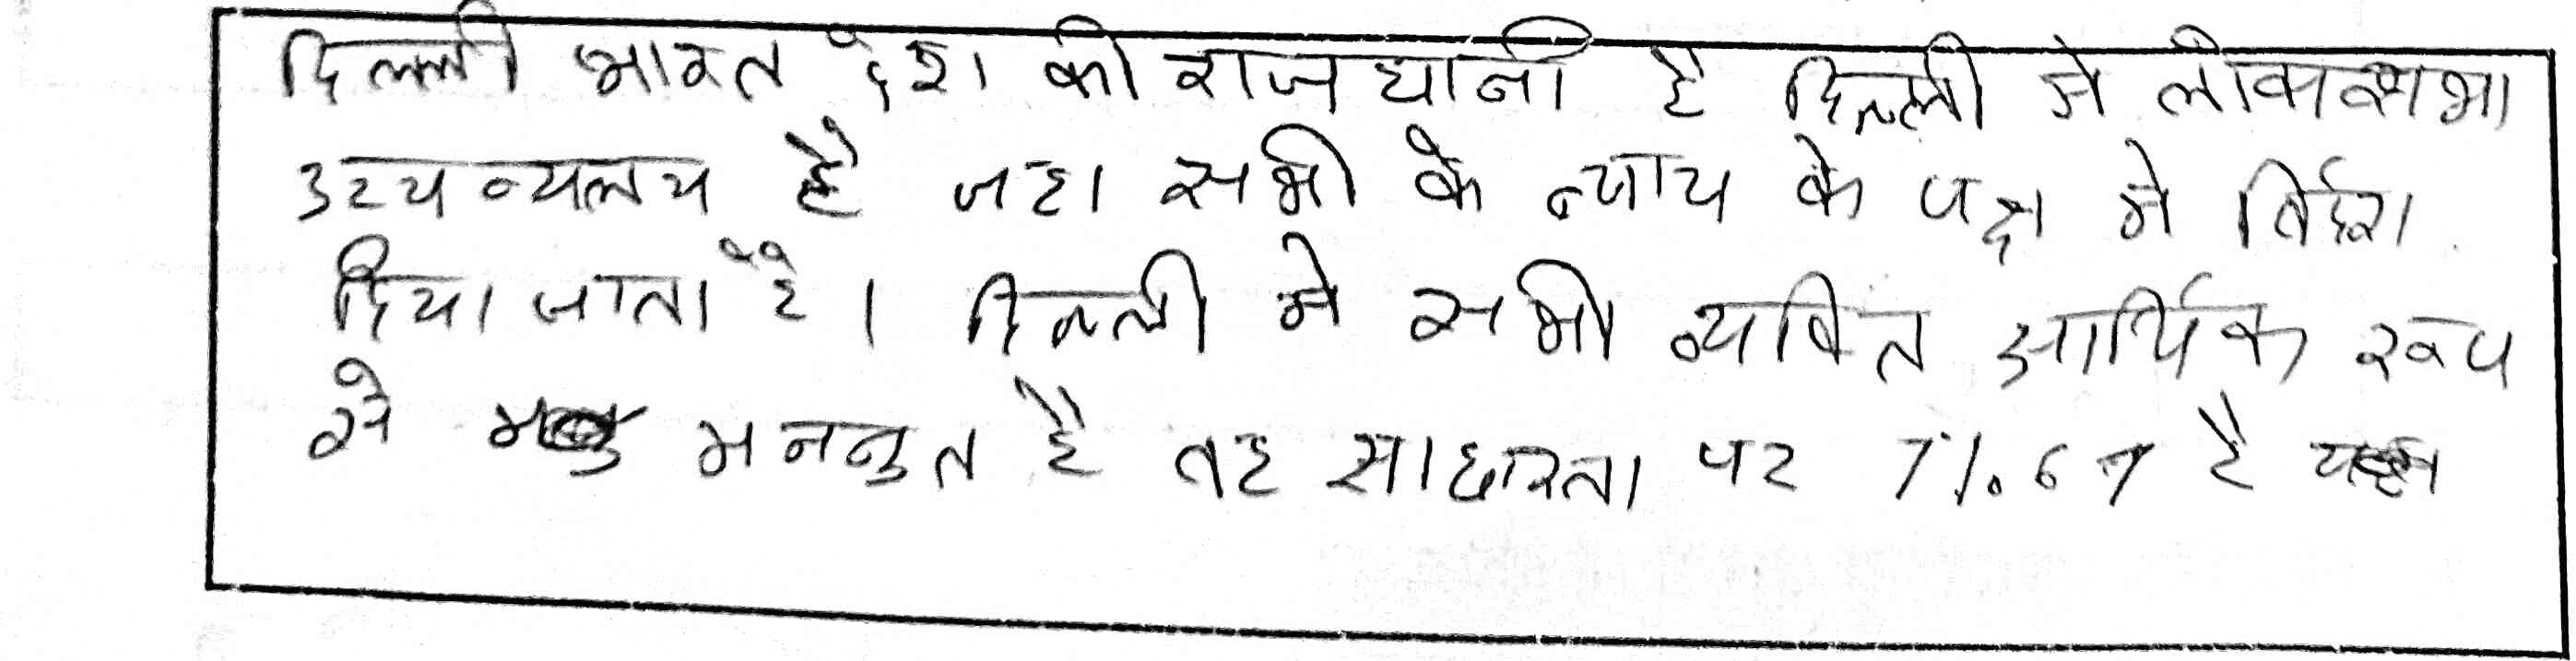 दिल्ली भारत देश की राजधानी है दिल्ली मे लोकसभा
उच्य व्यलय है जहा सभी के न्याय के पक्ष मे निर्देश
दिया जाता है । दिल्ली मे सभी व्यक्ति आर्थिक रूप
से मजबुत है वह साक्षरता पर 71.67 है